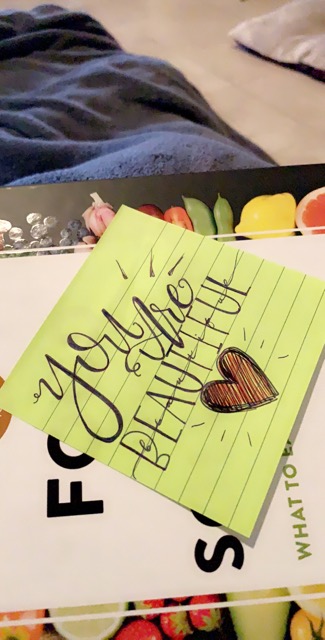 You Are
BEAUTIFUL
FO
SO
WHAT TO E